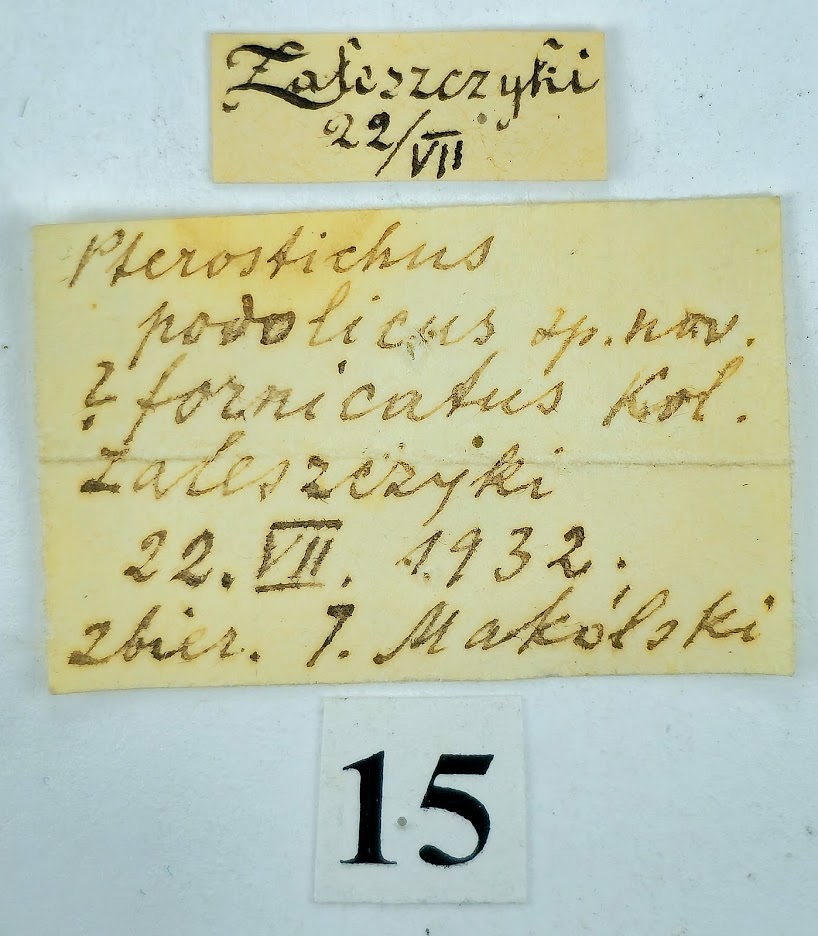 Zaleszczyki
22/VII
Pterostichus
podolicus sp. nov.
? fornicatus Kol.
Zaleszczyki
22. VII. 1932.
zbier. J. Makólski
15